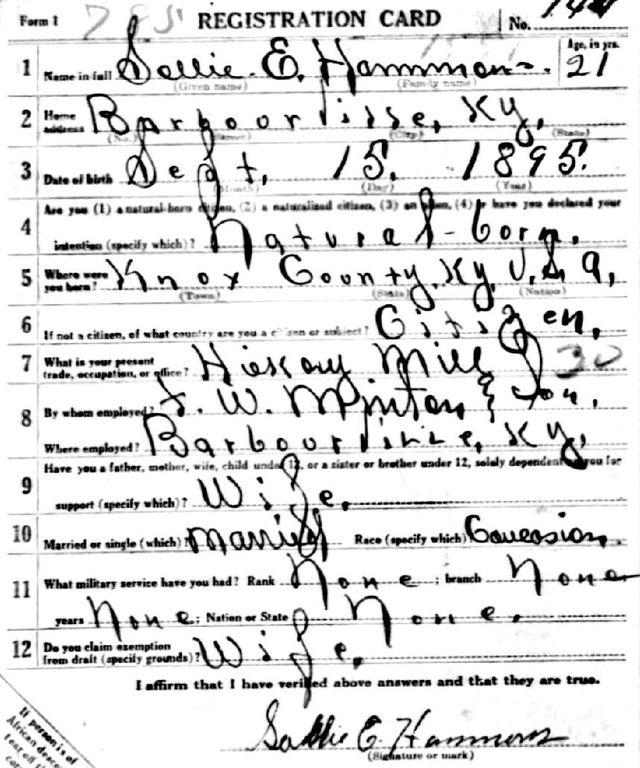 Form 1 785 REGISTRATION CARD No. 144
Age, in yrs.
1 Name in full Sallie E. Hammons. 21
(Given name) (Family name)
2 Home address Barbourville, Ky.
(No.) (Street) (City) (State)
3 Date of birth Sept. 15. 1895.
(Month) (Day) (Year)
Are you (1) a natural-born citizen, (2) a naturalized citizen, (3) an alien, (4) or have you declared your
4 intention (specify which)? Natural-born.
5 Where were you born? Knox County, Ky, U.S.A,
(Town) (State) (Nation)
6 If not a citizen, of what country are you a citizen or subject? Citizen,
7 What is your present trade, occupation, or office? Hickory Mill 30
8 By whom employed? W. Minton & Son,
Where employed? Barbourville, Ky,
Have you a father, mother, wife, child under 12, or a sister or brother under 12, solely dependent on you for
9 support (specify which)? Wife,
10 Married or single (which)? Married Race (specify which) Caucasian.
11 What military service have you had? Rank None ; branch None
years None ; Nation or State None.
12 Do you claim exemption from draft (specify grounds)? Wife,
I affirm that I have verified above answers and that they are true.
Sallie E Hammons
(Signature or mark)
If person is of
African
tear off